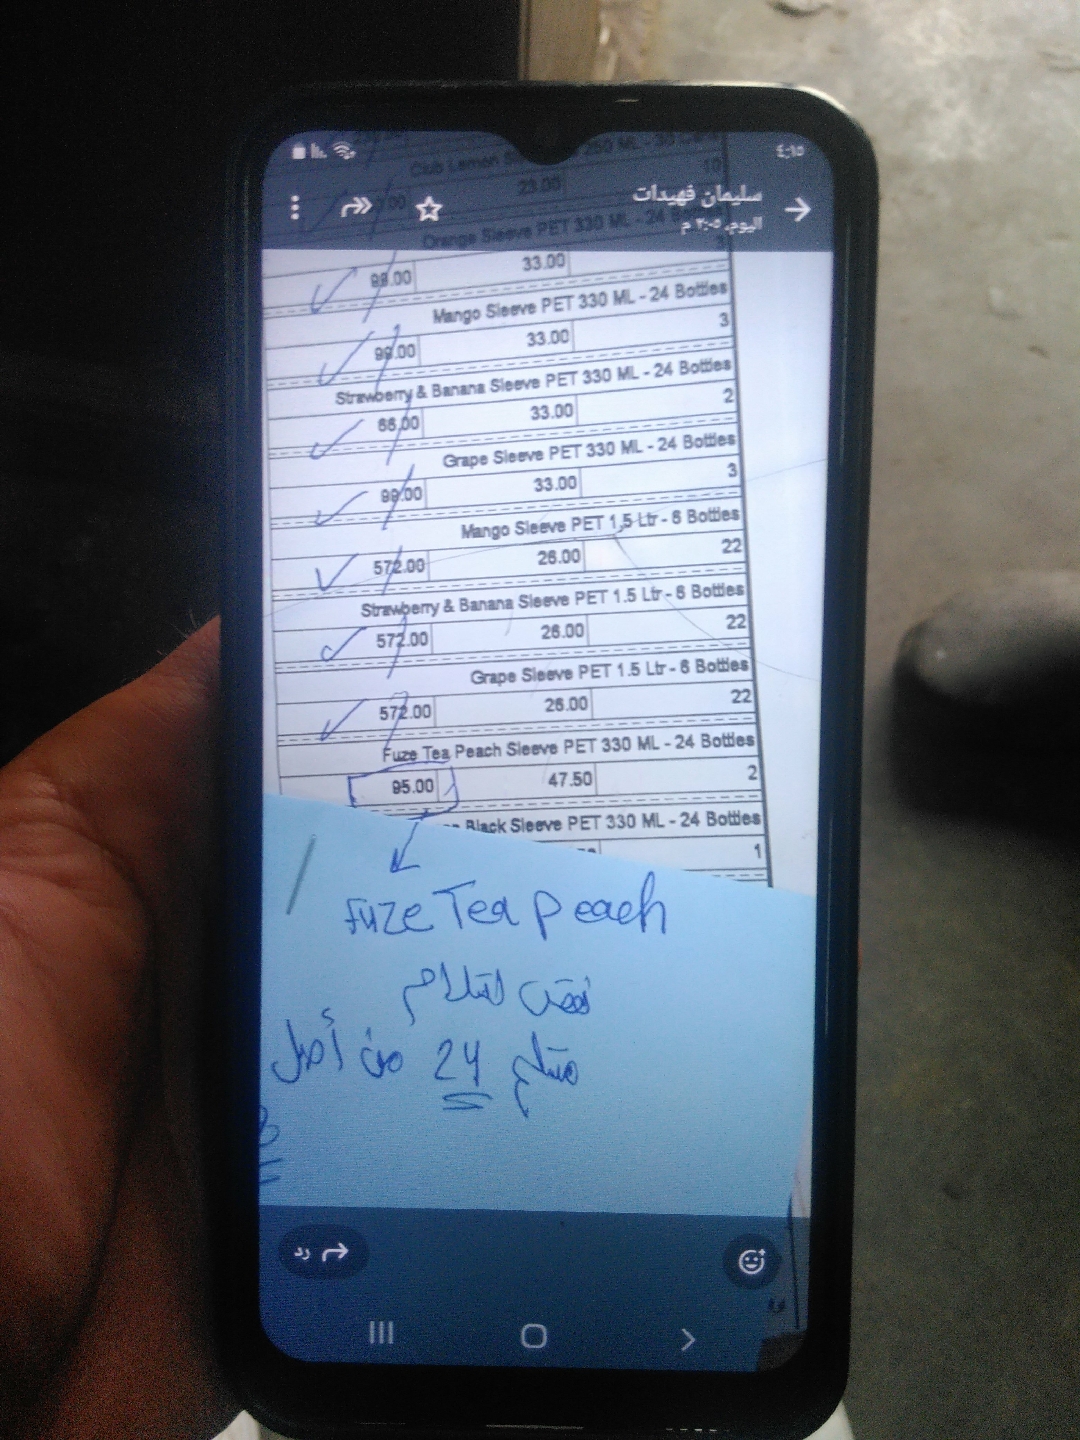 ٤:١٥
سليمان فهيدات
اليوم، ٣:٠٥ م
Club Lemon 250 ML - 30
23.00 10
Orange Sleeve PET 330 ML - 24
99.00 33.00 3
Mango Sleeve PET 330 ML - 24 Bottles
99.00 33.00 3
Strawberry & Banana Sleeve PET 330 ML - 24 Bottles
66.00 33.00 2
Grape Sleeve PET 330 ML - 24 Bottles
99.00 33.00 3
Mango Sleeve PET 1.5 Ltr - 6 Bottles
572.00 26.00 22
Strawberry & Banana Sleeve PET 1.5 Ltr - 6 Bottles
572.00 26.00 22
Grape Sleeve PET 1.5 Ltr - 6 Bottles
572.00 26.00 22
Fuze Tea Peach Sleeve PET 330 ML - 24 Bottles
95.00 47.50 2
Black Sleeve PET 330 ML - 24 Bottles
1
Fuze Tea Peach
نقص استلام
24 من أصل
رد